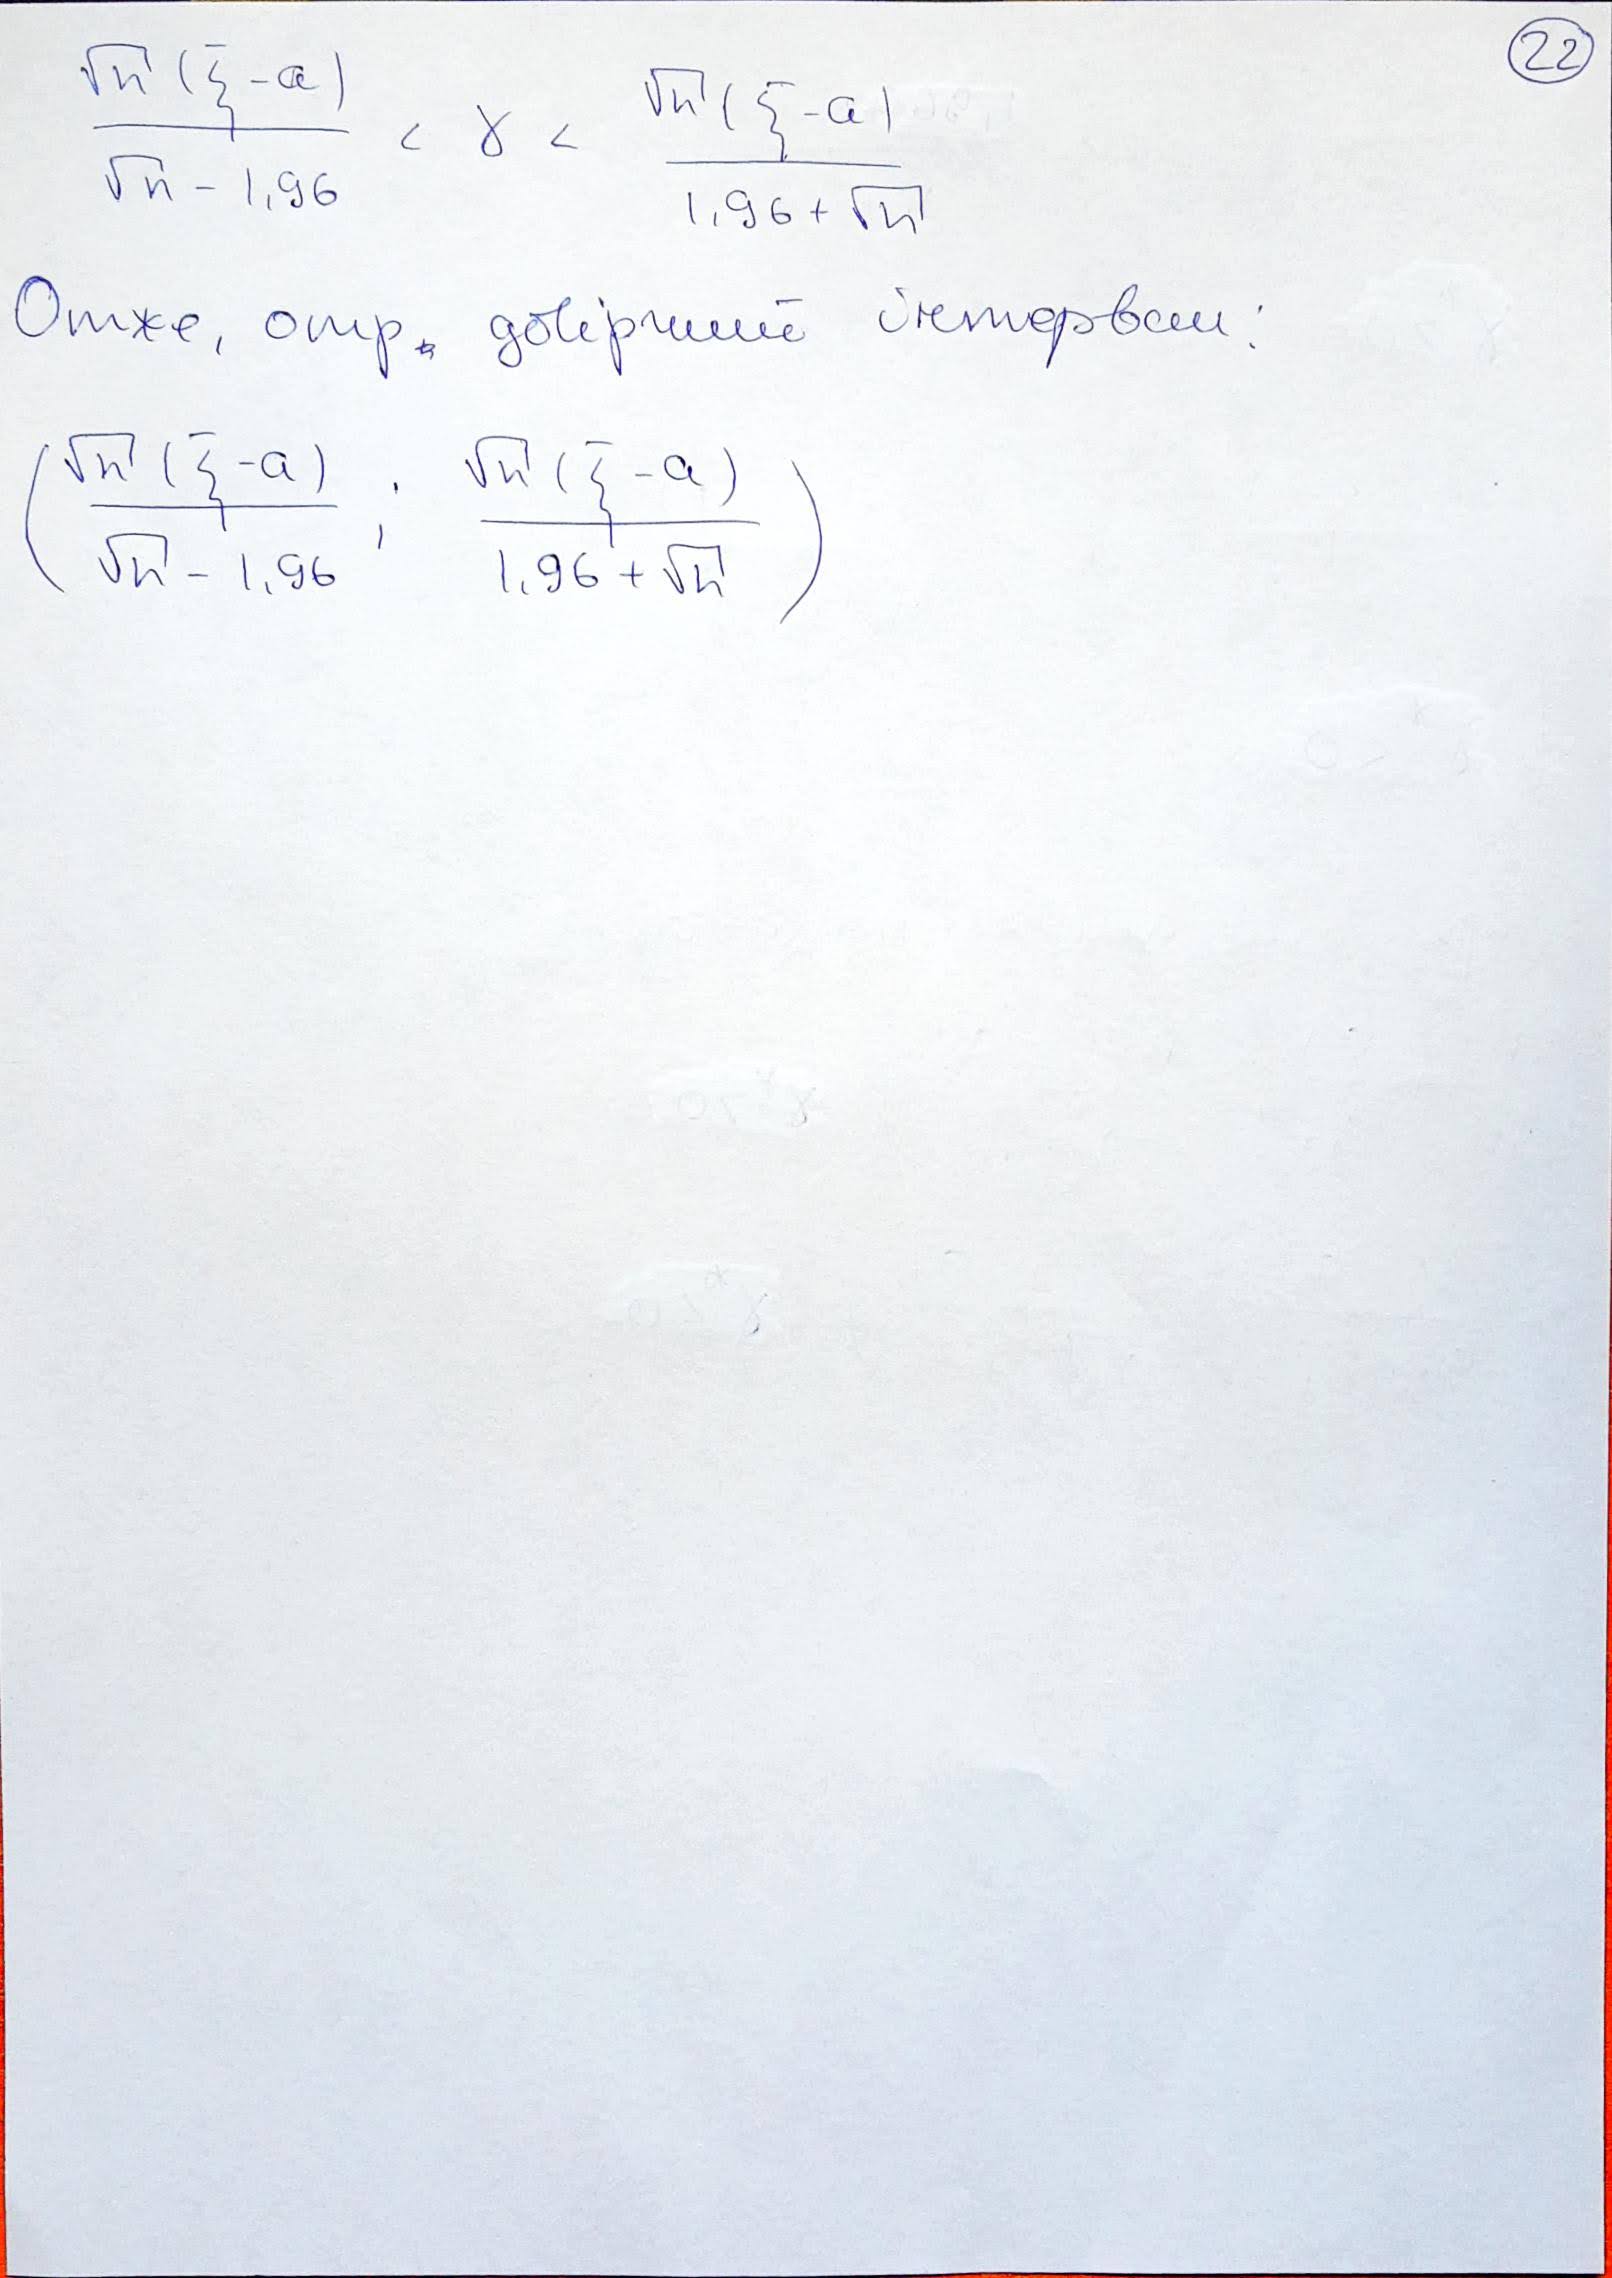 22
√n (ξ̄ - a) / √n - 1,96 < γ < √n (ξ̄ - a) / 1,96 + √n
Отже, отр. довірчий інтервал:
( √n (ξ̄ - a) / √n - 1,96 ; √n (ξ̄ - a) / 1,96 + √n )